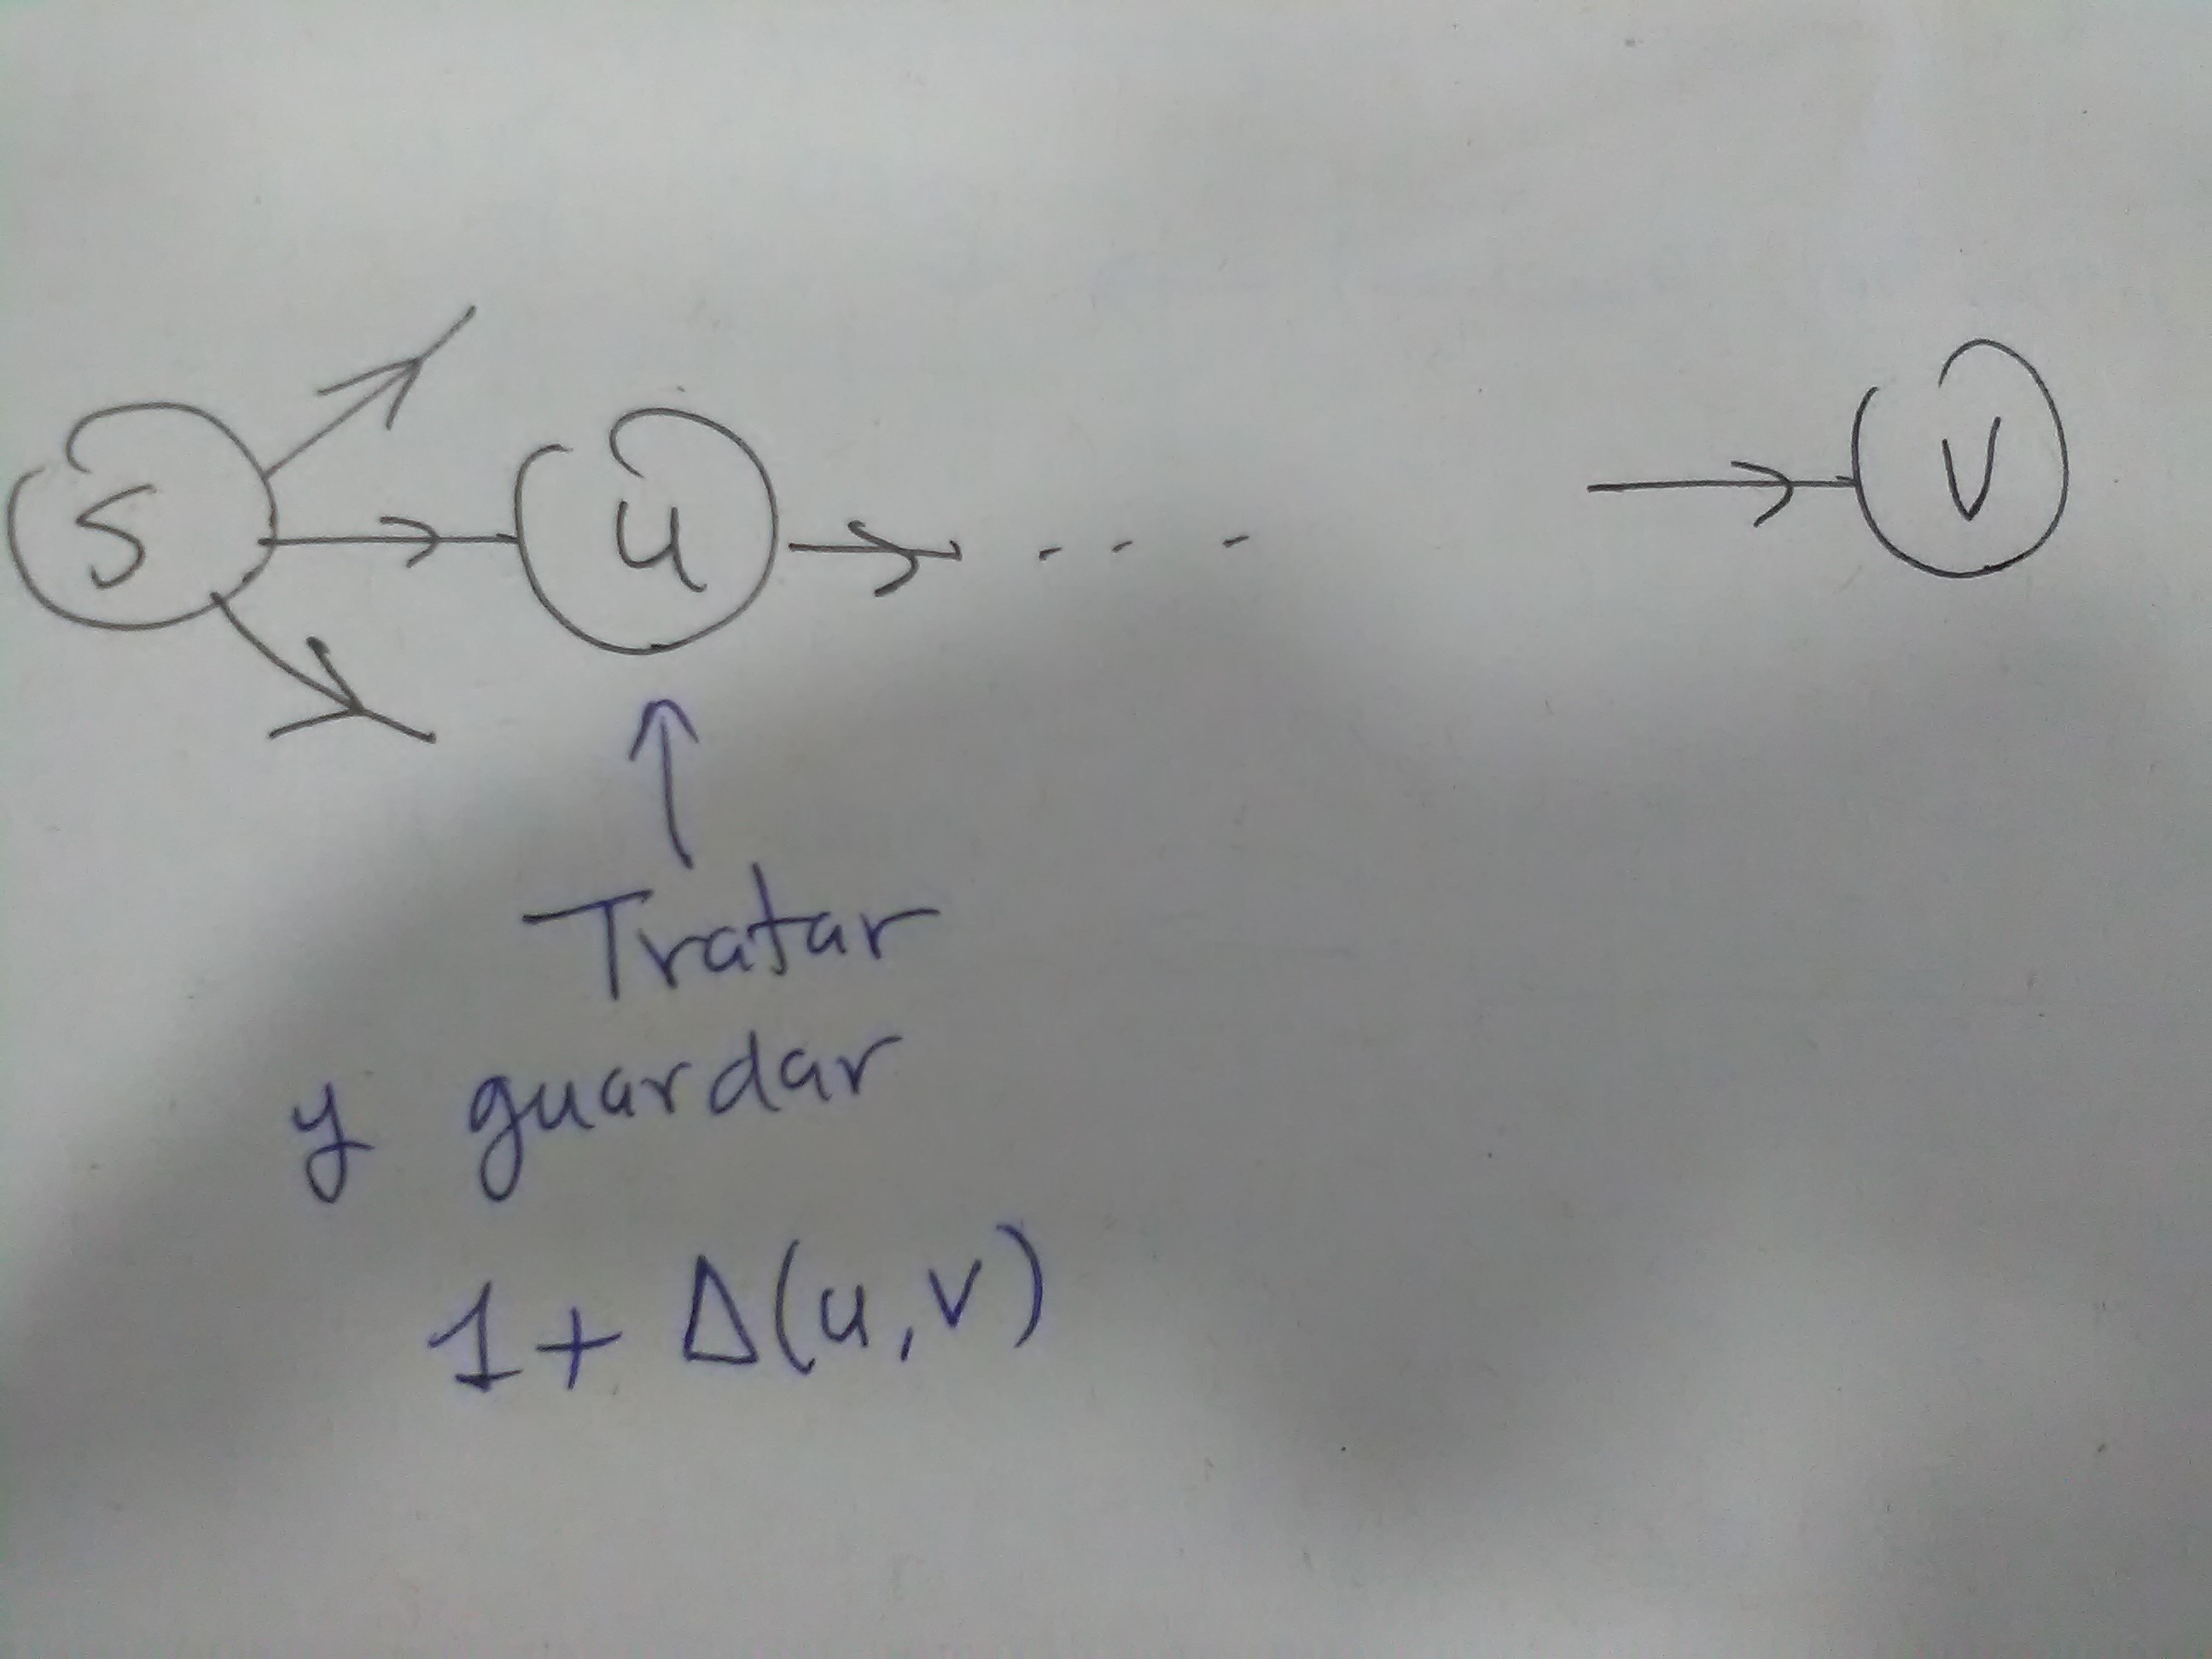 s u v
Tratar
y guardar
1 + Δ(u,v)